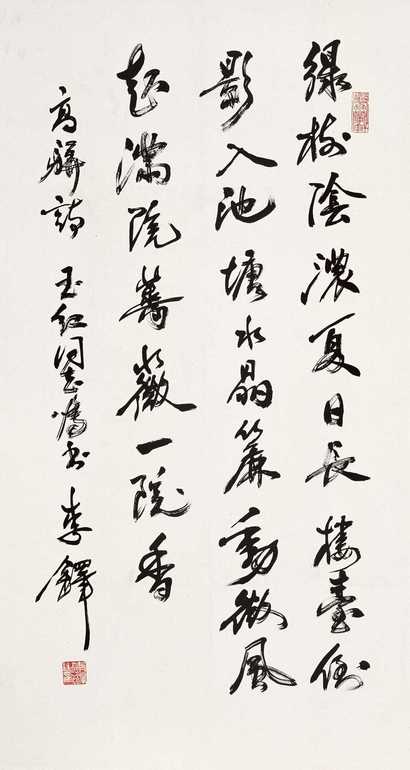 綠樹陰濃夏日長樓臺倒
影入池塘水晶簾動微風
起滿院薔薇一院香
高駢詩 玉紅同志囑書 李鐸